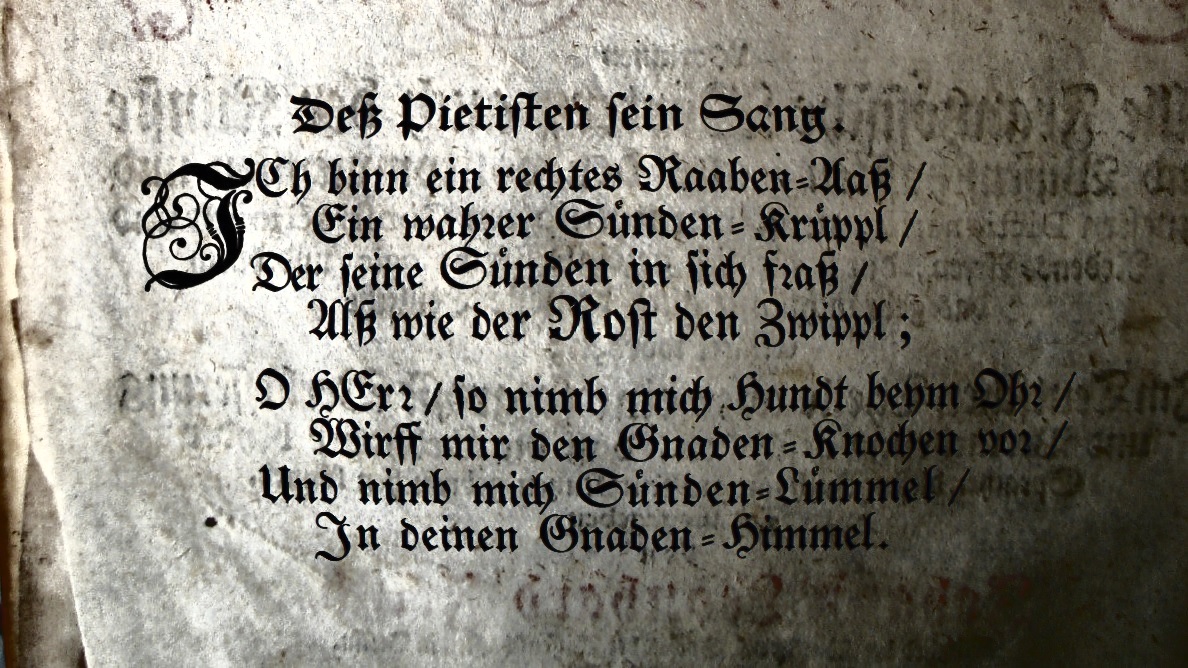 Deß Pietiſten ſein Sang.
ICh binn ein rechtes Raaben-Aaß /
Ein wahꝛer Suͤnden-Kruͤppl /
Der ſeine Suͤnden in ſich fꝛaß /
Alß wie der Roſt den Zwippl;
O HErꝛ / ſo nimb mich Hundt beym Ohꝛ /
Wirff mir den Gnaden-Knochen voꝛ /
Und nimb mich Suͤnden-Luͤmmel /
In deinen Gnaden-Himmel.